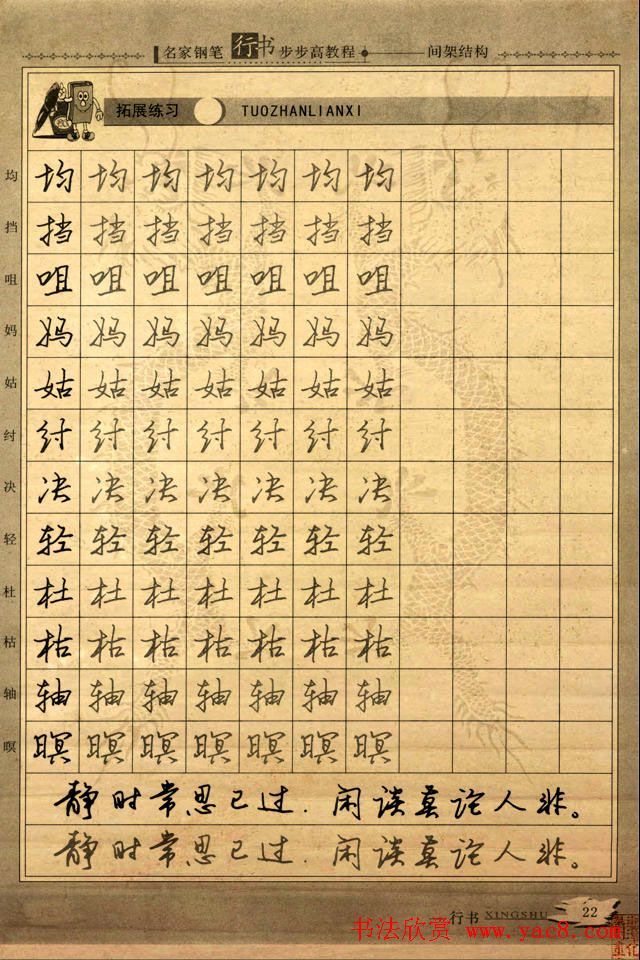 名家钢笔行书步步高教程 间架结构
拓展练习 TUOZHANLIANXI
均 均 均 均 均 均 均 均
挡 挡 挡 挡 挡 挡 挡 挡
咀 咀 咀 咀 咀 咀 咀 咀
妈 妈 妈 妈 妈 妈 妈 妈
姑 姑 姑 姑 姑 姑 姑 姑
纣 纣 纣 纣 纣 纣 纣 纣
决 决 决 决 决 决 决 决
轻 轻 轻 轻 轻 轻 轻 轻
杜 杜 杜 杜 杜 杜 杜 杜
枯 枯 枯 枯 枯 枯 枯 枯
轴 轴 轴 轴 轴 轴 轴 轴
暝 暝 暝 暝 暝 暝 暝 暝
静时常思己过.闲谈莫论人非。
静时常思己过.闲谈莫论人非。
行书 XINGSHU 22
书法欣赏 www.yac8.com